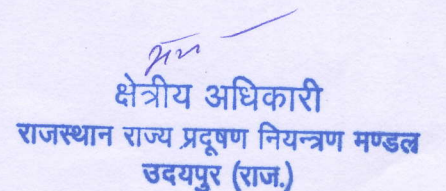 क्षेत्रीय अधिकारी
राजस्थान राज्य प्रदूषण नियन्त्रण मण्डल
उदयपुर (राज.)